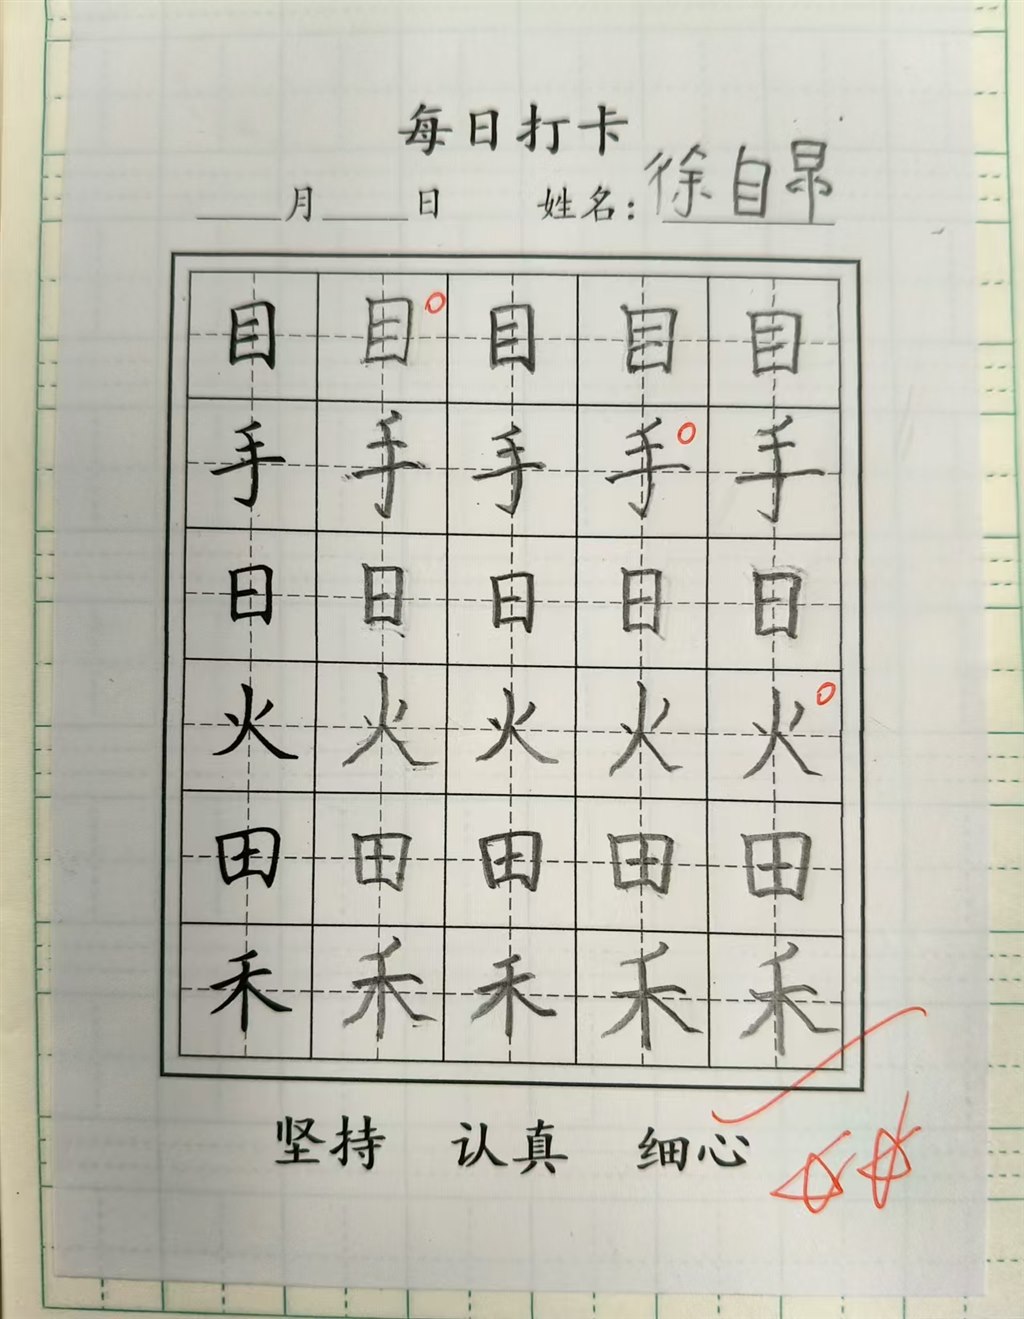 每日打卡
月 日 姓名：徐自昂
目 目 目 目 目
手 手 手 手 手
日 日 日 日 日
火 火 火 火 火
田 田 田 田 田
禾 禾 禾 禾 禾
坚持 认真 细心